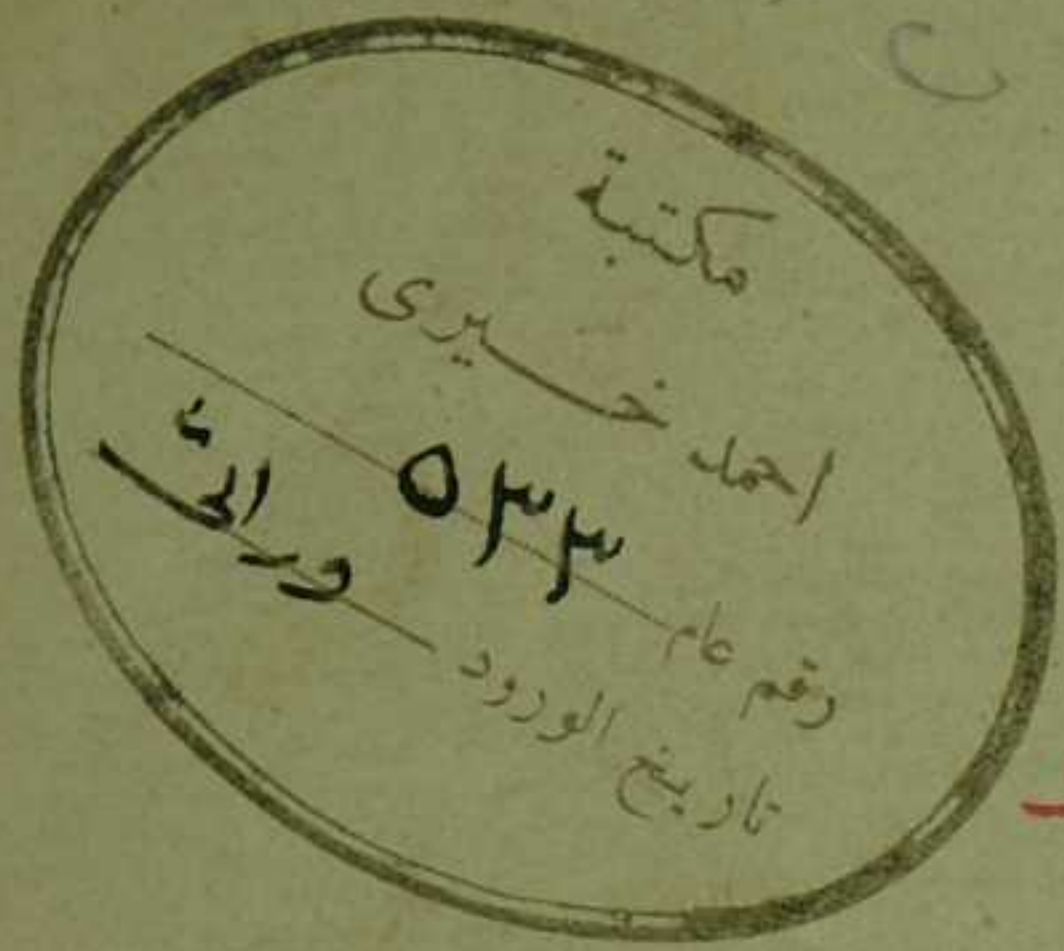 مكتبة
احمد خيرى
رقم عام ٥٣٣
تاريخ الورود